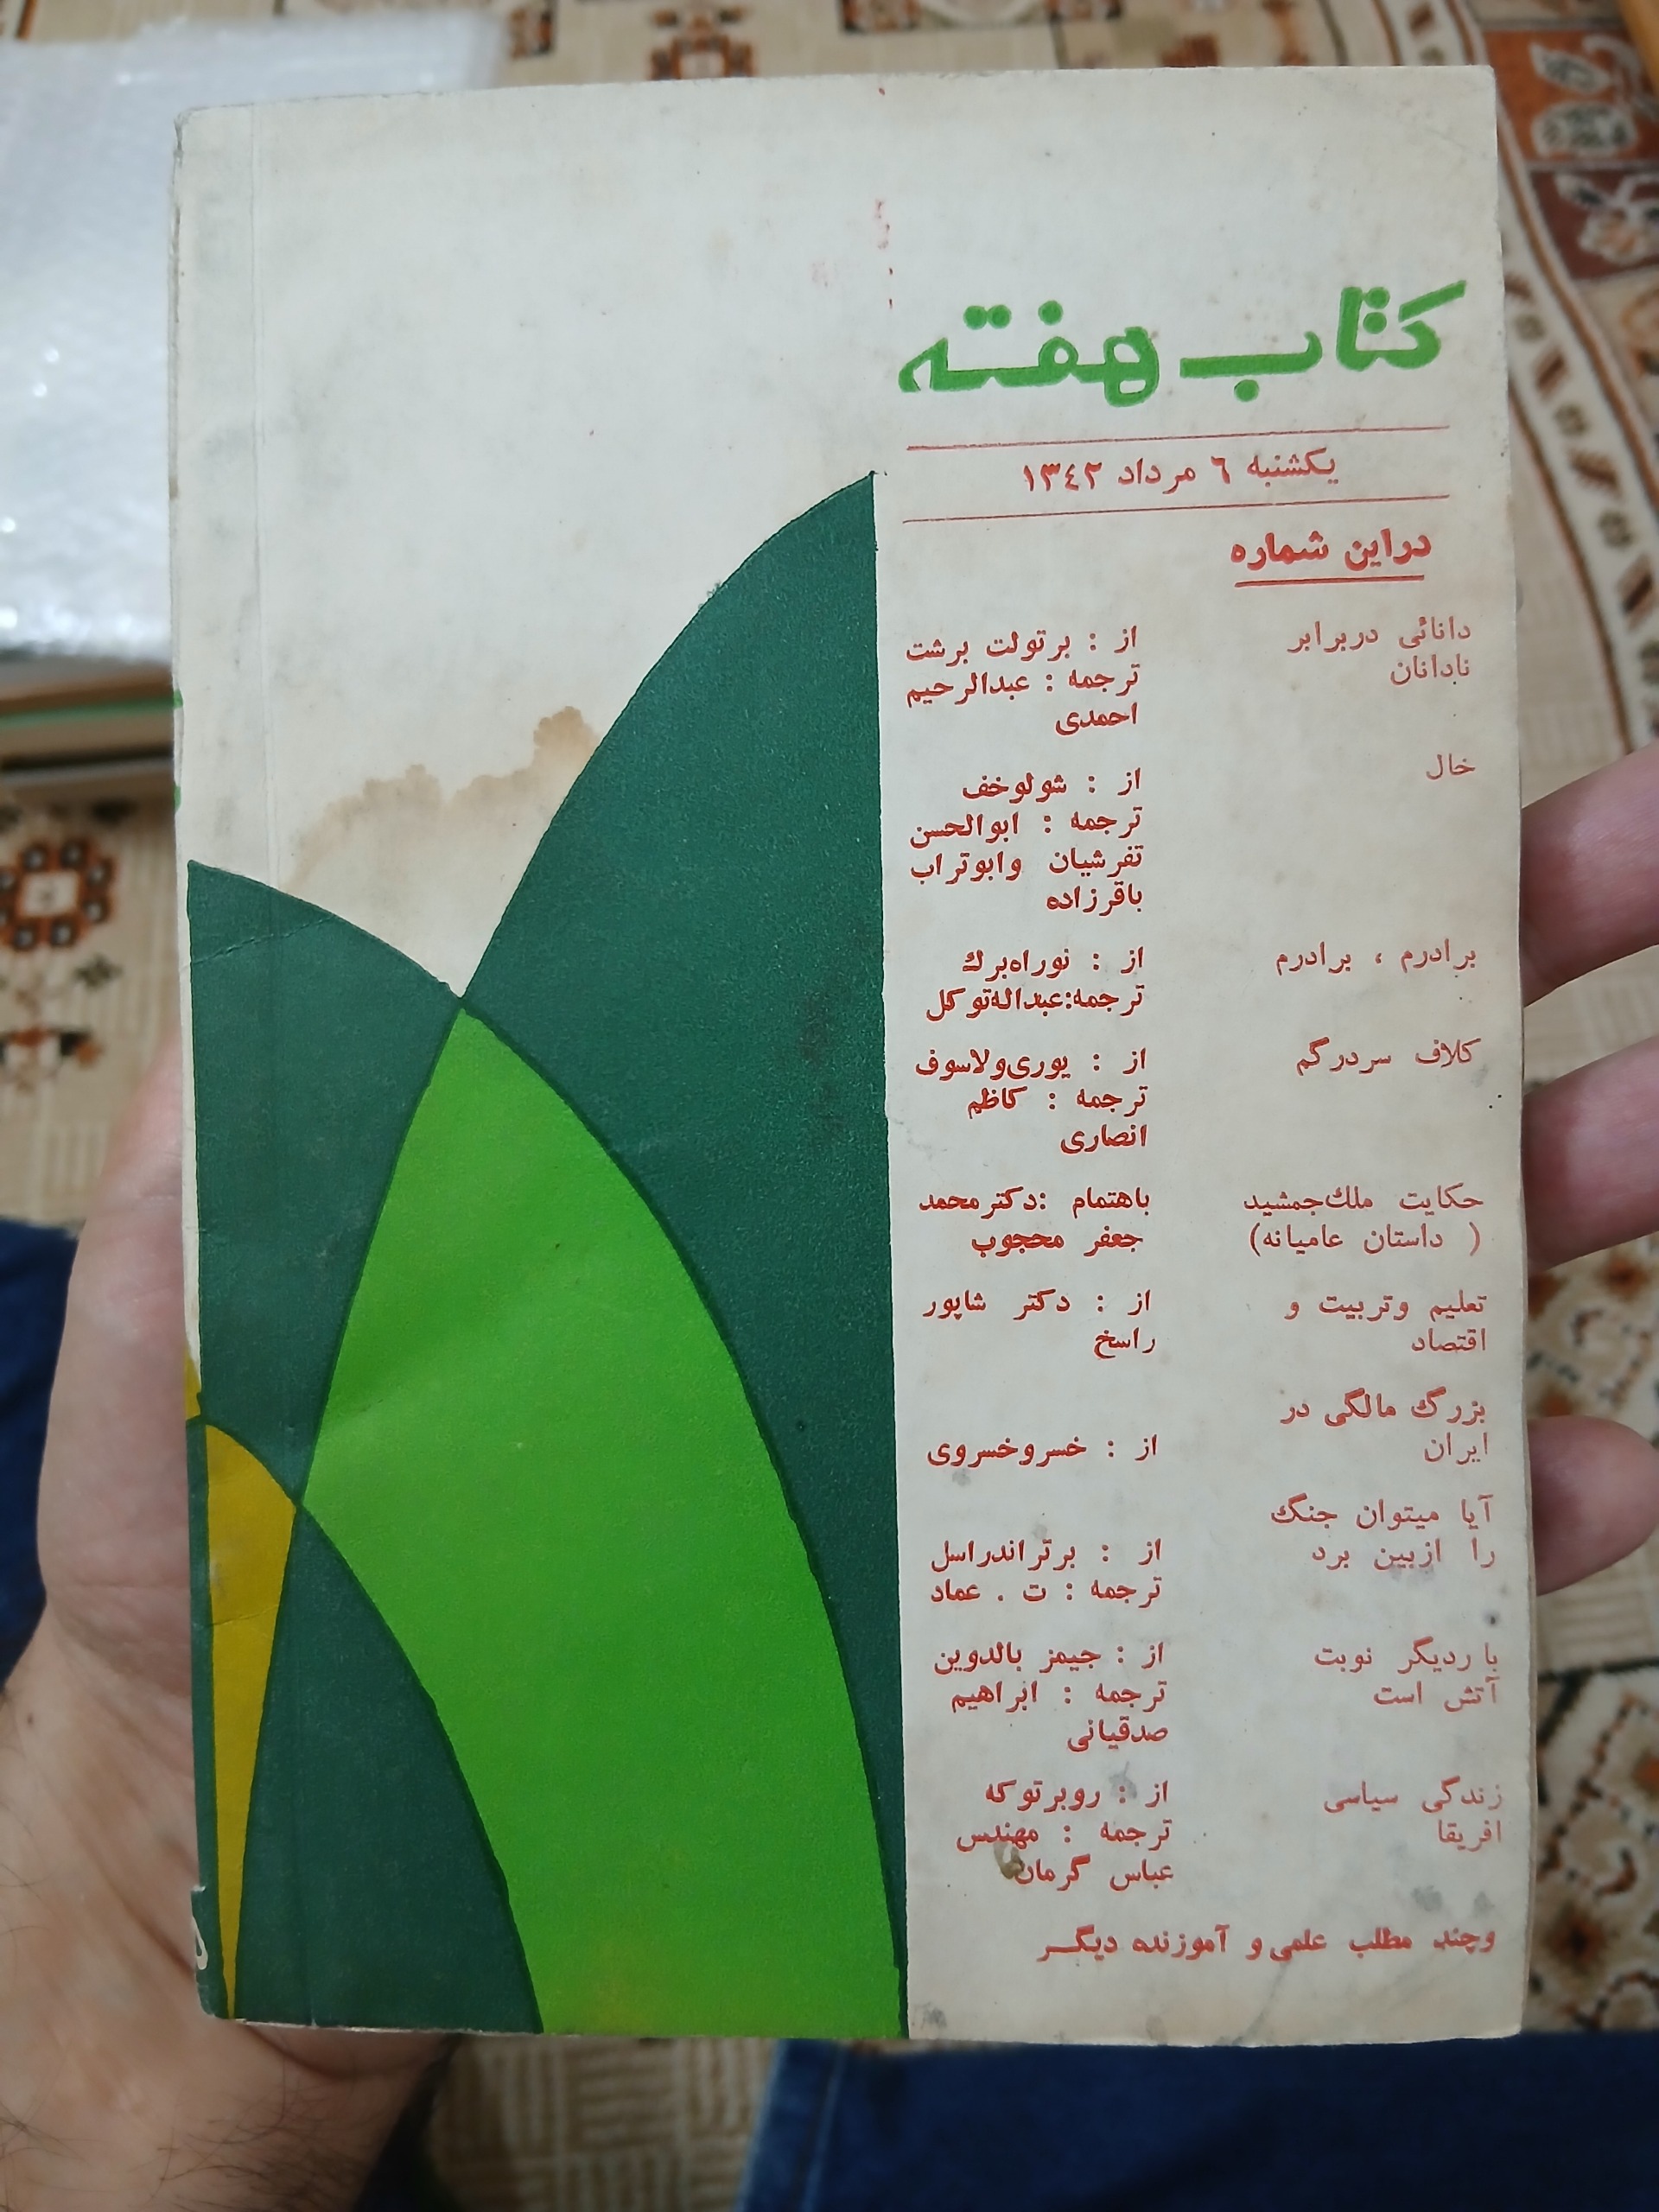 کتاب هفته
یکشنبه ٦ مرداد ١٣٤٢
دراین شماره
دانائی دربرابر
نادانان
از : برتولت برشت
ترجمه : عبدالرحیم
احمدی
خال
از : شولوخف
ترجمه : ابوالحسن
تفرشیان وابوتراب
باقرزاده
برادرم ، برادرم
از : نوراه‌برك
ترجمه:عبداله‌توکل
کلاف سردرگم
از : یوری‌ولاسوف
ترجمه : کاظم
انصاری
حکایت ملك‌جمشید
( داستان عامیانه)
باهتمام :دکترمحمد
جعفر محجوب
تعلیم وتربیت و
اقتصاد
از : دکتر شاپور
راسخ
بزرگ مالگی در
ایران
از : خسروخسروی
آیا میتوان جنگ
را ازبین برد
از : برتراندراسل
ترجمه : ت . عماد
باردیگر نوبت
آتش است
از : جیمز بالدوین
ترجمه : ابراهیم
صدقیانی
زندگی سیاسی
افریقا
از : روبرتوکه
ترجمه : مهندس
عباس گرمان
وچند مطلب علمی و آموزنده دیگر